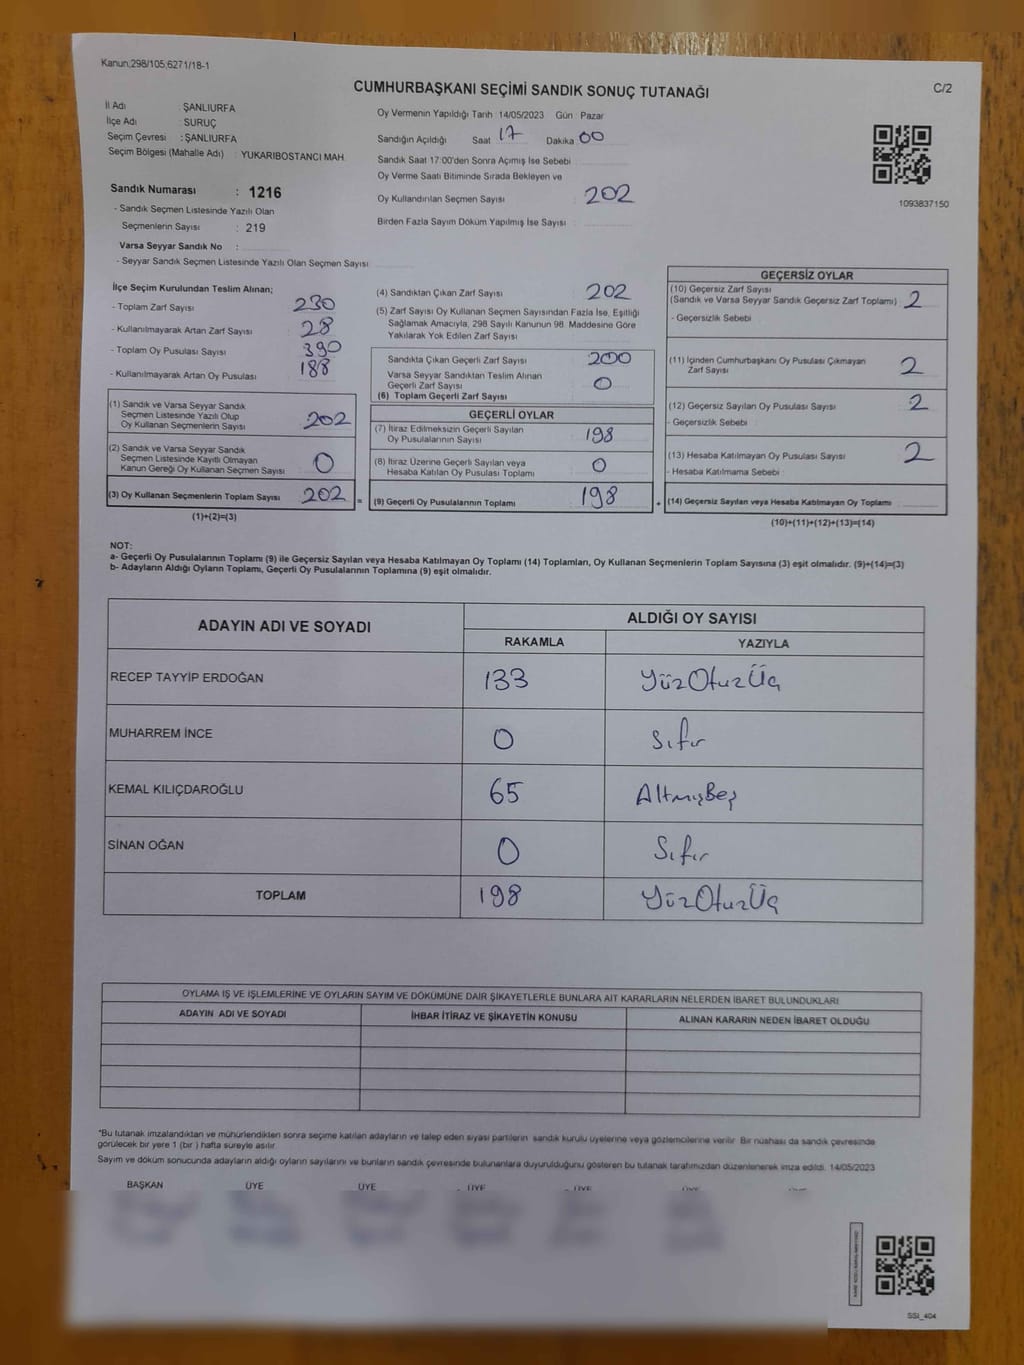 Kanun,298/105,6271/18-1
CUMHURBAŞKANI SEÇİMİ SANDIK SONUÇ TUTANAĞI
C/2
İl Adı : ŞANLIURFA
İlçe Adı : SURUÇ
Seçim Çevresi : ŞANLIURFA
Seçim Bölgesi (Mahalle Adı) : YUKARIBOSTANCI MAH.
Oy Vermenin Yapıldığı Tarih : 14/05/2023 Gün : Pazar
Sandığın Açıldığı Saat 17 Dakika 00
Sandık Saat 17:00'den Sonra Açımış İse Sebebi
Oy Verme Saati Bitiminde Sırada Bekleyen ve
Oy Kullandırılan Seçmen Sayısı : 202
Birden Fazla Sayım Döküm Yapılmış İse Sayısı :
1093837150
Sandık Numarası : 1216
- Sandık Seçmen Listesinde Yazılı Olan
Seçmenlerin Sayısı : 219
Varsa Seyyar Sandık No :
- Seyyar Sandık Seçmen Listesinde Yazılı Olan Seçmen Sayısı
İlçe Seçim Kurulundan Teslim Alınan;
- Toplam Zarf Sayısı : 230
- Kullanılmayarak Artan Zarf Sayısı : 28
- Toplam Oy Pusulası Sayısı : 390
- Kullanılmayarak Artan Oy Pusulası : 188
(1) Sandık ve Varsa Seyyar Sandık
Seçmen Listesinde Yazılı Olup
Oy Kullanan Seçmenlerin Sayısı : 202
(2) Sandık ve Varsa Seyyar Sandık
Seçmen Listesinde Kayıtlı Olmayan
Kanun Gereği Oy Kullanan Seçmen Sayısı : 0
(3) Oy Kullanan Seçmenlerin Toplam Sayısı : 202
(1)+(2)=(3)
=
(4) Sandıktan Çıkan Zarf Sayısı : 202
(5) Zarf Sayısı Oy Kullanan Seçmen Sayısından Fazla İse, Eşitliği
Sağlamak Amacıyla, 298 Sayılı Kanunun 98. Maddesine Göre
Yakılarak Yok Edilen Zarf Sayısı :
Sandıkta Çıkan Geçerli Zarf Sayısı : 200
Varsa Seyyar Sandıktan Teslim Alınan
Geçerli Zarf Sayısı : 0
(6) Toplam Geçerli Zarf Sayısı :
GEÇERLİ OYLAR
(7) İtiraz Edilmeksizin Geçerli Sayılan
Oy Pusulalarının Sayısı : 198
(8) İtiraz Üzerine Geçerli Sayılan veya
Hesaba Katılan Oy Pusulası Toplamı : 0
(9) Geçerli Oy Pusulalarının Toplamı : 198
+
GEÇERSİZ OYLAR
(10) Geçersiz Zarf Sayısı
(Sandık ve Varsa Seyyar Sandık Geçersiz Zarf Toplamı) : 2
- Geçersizlik Sebebi :
(11) İçinden Cumhurbaşkanı Oy Pusulası Çıkmayan
Zarf Sayısı : 2
(12) Geçersiz Sayılan Oy Pusulası Sayısı : 2
- Geçersizlik Sebebi :
(13) Hesaba Katılmayan Oy Pusulası Sayısı : 2
- Hesaba Katılmama Sebebi :
(14) Geçersiz Sayılan veya Hesaba Katılmayan Oy Toplamı :
(10)+(11)+(12)+(13)=(14)
NOT:
a- Geçerli Oy Pusulalarının Toplamı (9) ile Geçersiz Sayılan veya Hesaba Katılmayan Oy Toplamı (14) Toplamları, Oy Kullanan Seçmenlerin Toplam Sayısına (3) eşit olmalıdır. (9)+(14)=(3)
b- Adayların Aldığı Oyların Toplamı, Geçerli Oy Pusulalarının Toplamına (9) eşit olmalıdır.
ADAYIN ADI VE SOYADI
ALDIĞI OY SAYISI
RAKAMLA YAZIYLA
RECEP TAYYİP ERDOĞAN 133 YüzOtuzÜç
MUHARREM İNCE 0 Sıfır
KEMAL KILIÇDAROĞLU 65 AltmışBeş
SİNAN OĞAN 0 Sıfır
TOPLAM 198 YüzOtuzÜç
OYLAMA İŞ VE İŞLEMLERİNE VE OYLARIN SAYIM VE DÖKÜMÜNE DAİR ŞİKAYETLERLE BUNLARA AİT KARARLARIN NELERDEN İBARET BULUNDUKLARI
ADAYIN ADI VE SOYADI İHBAR İTİRAZ VE ŞİKAYETİN KONUSU ALINAN KARARIN NEDEN İBARET OLDUĞU
*Bu tutanak imzalandıktan ve mühürlendikten sonra seçime katılan adayların ve talep eden siyasi partilerin sandık kurulu üyelerine veya gözlemcilerine verilir. Bir nüshası da sandık çevresinde
görülecek bir yere 1 (bir) hafta süreyle asılır.
Sayım ve döküm sonucunda adayların aldığı oyların sayılarını ve bunların sandık çevresinde bulunanlara duyurulduğunu gösteren bu tutanak tarafımızdan düzenlenerek imza edildi. 14/05/2023
BAŞKAN ÜYE ÜYE ÜYE ÜYE
SSI_404